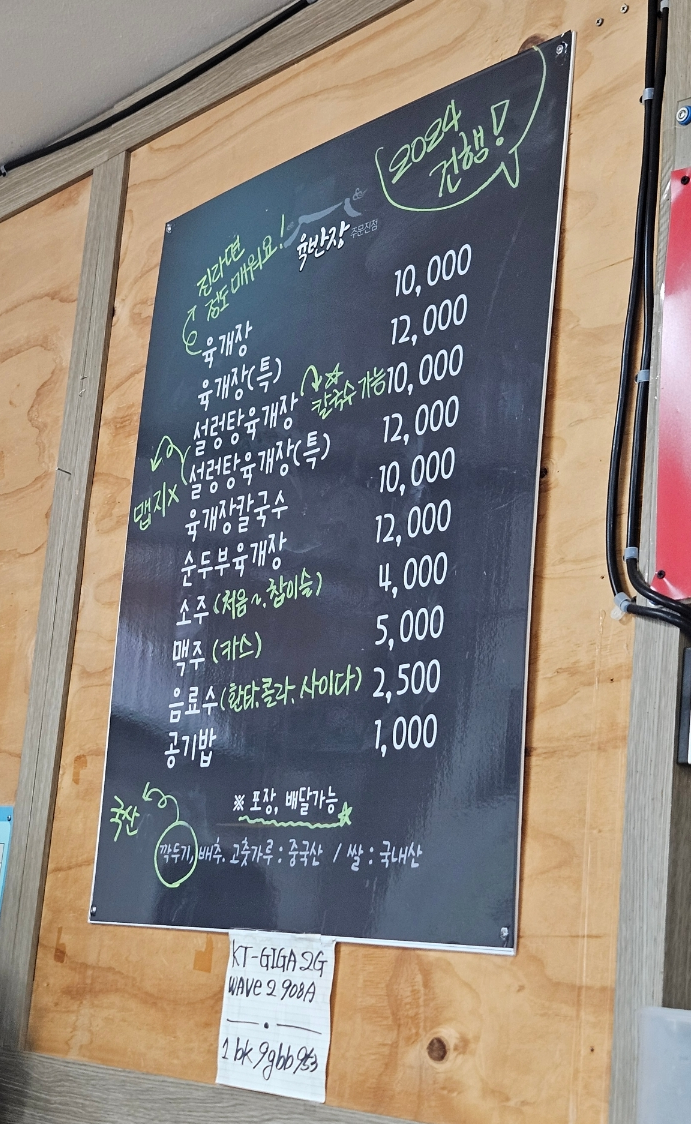 2024
건행!
육반장 주문진점
진라면
정도 매워요!
육개장 10,000
육개장(특) 12,000
설렁탕육개장 칼국수 가능 10,000
설렁탕육개장(특) 12,000
맵지X
육개장칼국수 10,000
순두부육개장 12,000
소주 (처음~, 참이슬) 4,000
맥주 (카스) 5,000
음료수 (환타. 콜라. 사이다) 2,500
공기밥 1,000
※ 포장, 배달가능
국산
깍두기, 배추. 고춧가루 : 중국산 / 쌀 : 국내산
KT-GIGA 2G
WAVE 2 908A
1bk9gbb953